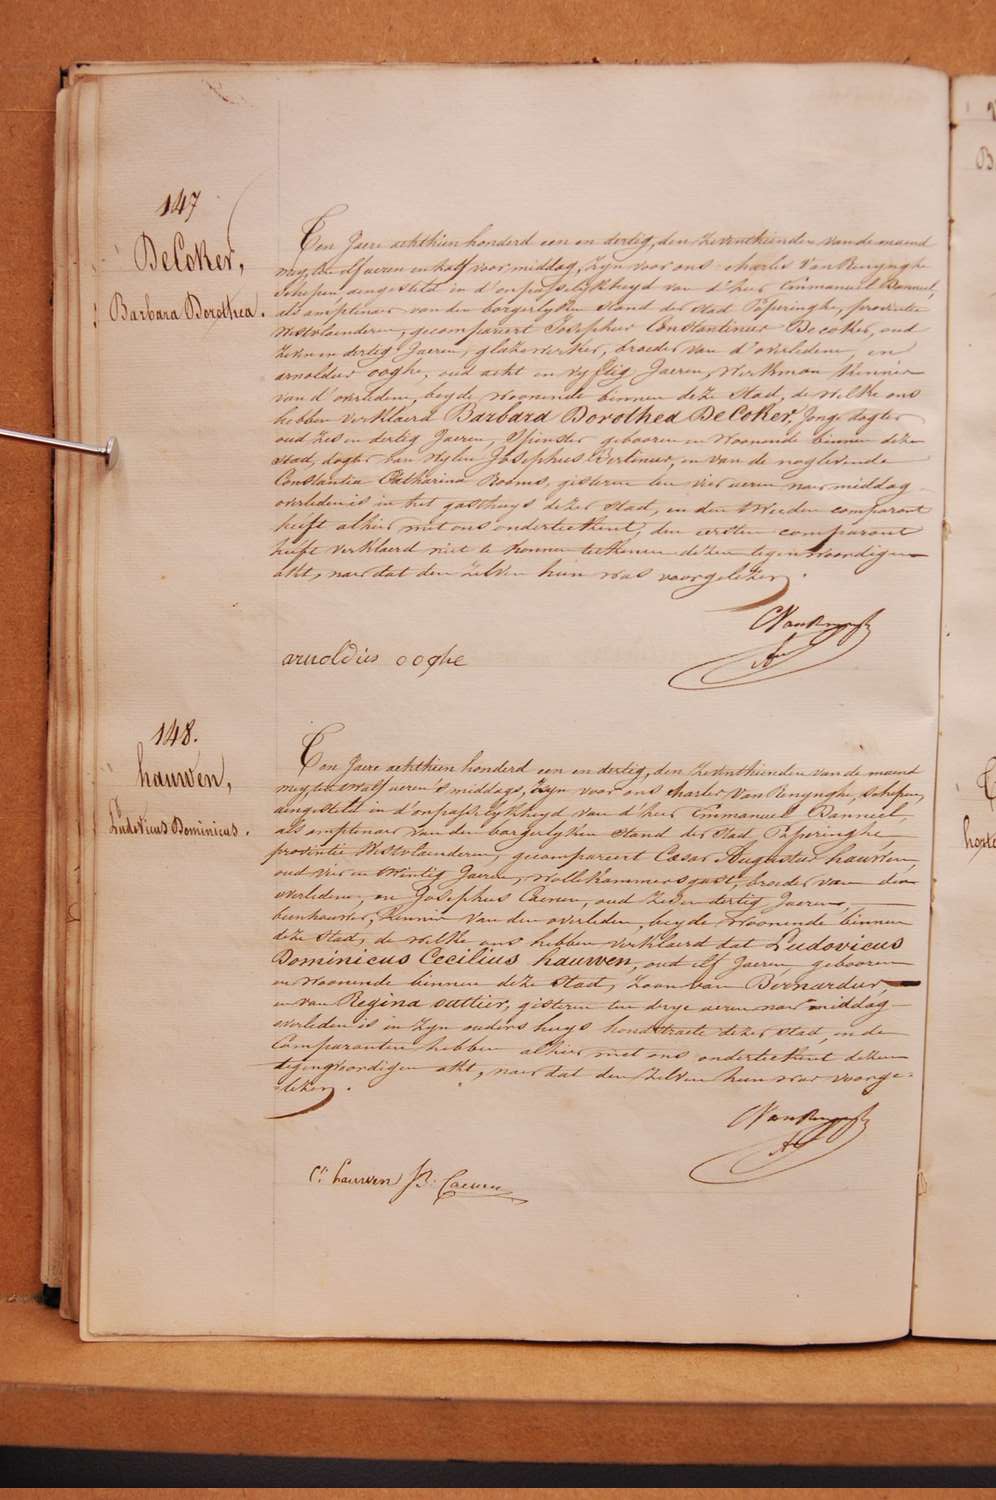 147
DeCoker,
Barbara Dorothea.
Ten Jaere achthien honderd een en dertig, den Zeventhienden van de maend
mey, ten elf ueren en half voor middag, Zyn voor ons charles Van Renynghe
Schepen aengesteld in d'onpasselykheyd van d'heer Emmanuel Banneel,
als amptenaer van den borgerlyken Stand der Stad Poperinghe, provintie
Westvlaenderen, gecompareert Josephus Constantinus Decoker, oud
Zeven en dertig Jaeren, glazewerker, broeder van d'overledene, en
arnoldus ooghe, oud acht en vyftig Jaeren, Werkman kennis
van d'overledene, beyde Woonende binnen deze Stad, de welke ons
hebben verklaerd Barbara Dorothea DeCoker, Jonge dogter
oud Zes en dertig Jaeren, Spinster gebooren en Woonende binnen deze
Stad, dogter van Wylen Josephus Bertinus, en van de naglevende
Constantia Catharina Booms, gisteren ten vier ueren naer middag
overleden is in het gasthuys dezer Stad, en den tweeden comparant
heeft alhier met ons onderteekent, den eersten comparant
heeft verklaerd niet te konnen teekenen dezen tegenwoordigen
akt, naer dat den zelven hun was voorgelezen.
CVanRenynghe
arnoldus ooghe
148.
hauwen,
Ludovicus Dominicus.
Ten Jaere achthien honderd een en dertig, den Zeventhienden van de maend
mey, ten twalf ueren 's middags, Zyn voor ons charles Van Renynghe, Schepen,
aengesteld in d'onpasselykheyd van d'heer Emmanuel Banneel,
als amptenaer van den borgerlyken Stand der Stad Poperinghe,
provintie Westvlaenderen, gecompareert Cæsar Augustus hauwen,
oud vier en twintig Jaeren, Wollekammersgast, broeder van den
overledenen, en Josephus Caenen, oud Zes en dertig Jaeren,
beenhouwer, kennis van den overleden, beyde Woonende binnen
deze Stad, de welke ons hebben verklaerd dat Ludovicus
Dominicus Cecilius hauwen, oud elf Jaeren, gebooren
en Woonende binnen deze Stad, Zoon van Bernardus,
en van Regina outtier, gisteren ten drye ueren naer middag
overleden is in Zyn ouders huys hondstraete dezer Stad, en de
Comparanten hebben alhier met ons onderteekent dezen
tegenwoordigen akt, naer dat den zelven hun was voorge-
lezen.
CVanRenynghe
Cr hauwen JB: Caenen